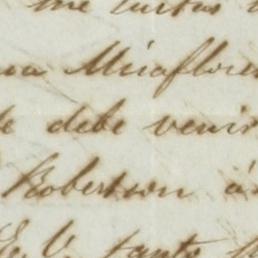 me cartas
Miraflores
debe venir
Robertson á
S. V. tanto